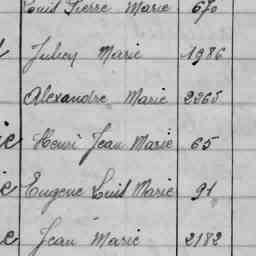 Louis Pierre Marie 670
Julien Marie 1986
Alexandre Marie 2365
ie Henri Jean Marie 65
ie Eugene Louis Marie 91
e Jean Marie 2182